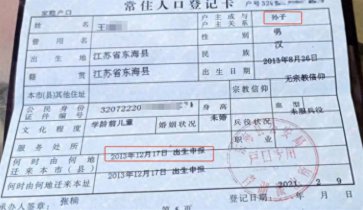 常住人口登记卡
姓名 王
户主或与户主关系 孙子
曾用名
性别 男
出生地 江苏省东海县
民族 汉
籍贯 江苏省东海县
出生日期 2013年8月26日
本市(县)其他住址
宗教信仰 无宗教信仰
公民身份证件编号 32072220
身高
血型 未
文化程度 学龄前儿童
婚姻状况 未婚
兵役状况 未服兵役
服务处所
职业
何时由何地迁来本市(县) 2013年12月17日 出生申报
何时由何地迁来本址 2013年12月17日 出生申报
承办人签章 张楠
登记日期 2021 2 9